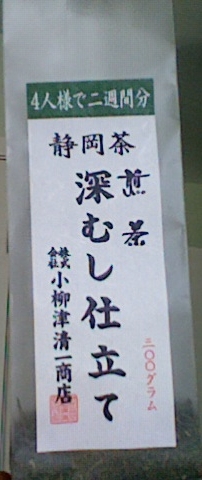 4人様で二週間分
静岡茶
煎茶
深むし仕立て
株式会社小柳津清一商店
三〇〇グラム